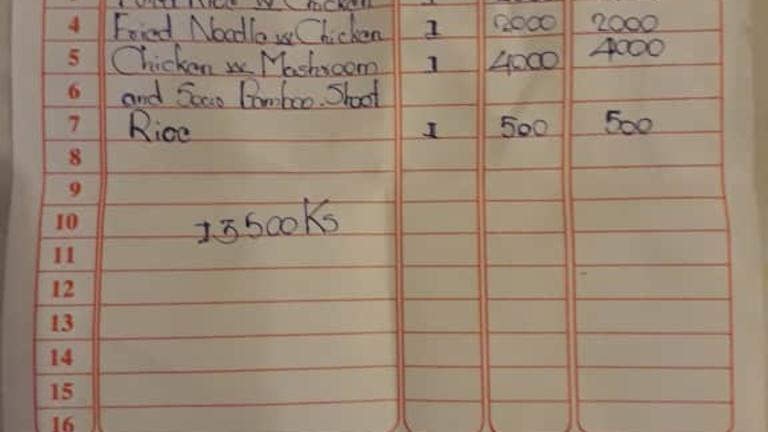 4 Fried Noodle w Chicken 1 2000 2000
5 Chicken w Mashroom 1 4000 4000
6 and Bamboo Shoot
7 Rice 1 500 500
8
9
10 13500 Ks
11
12
13
14
15
16